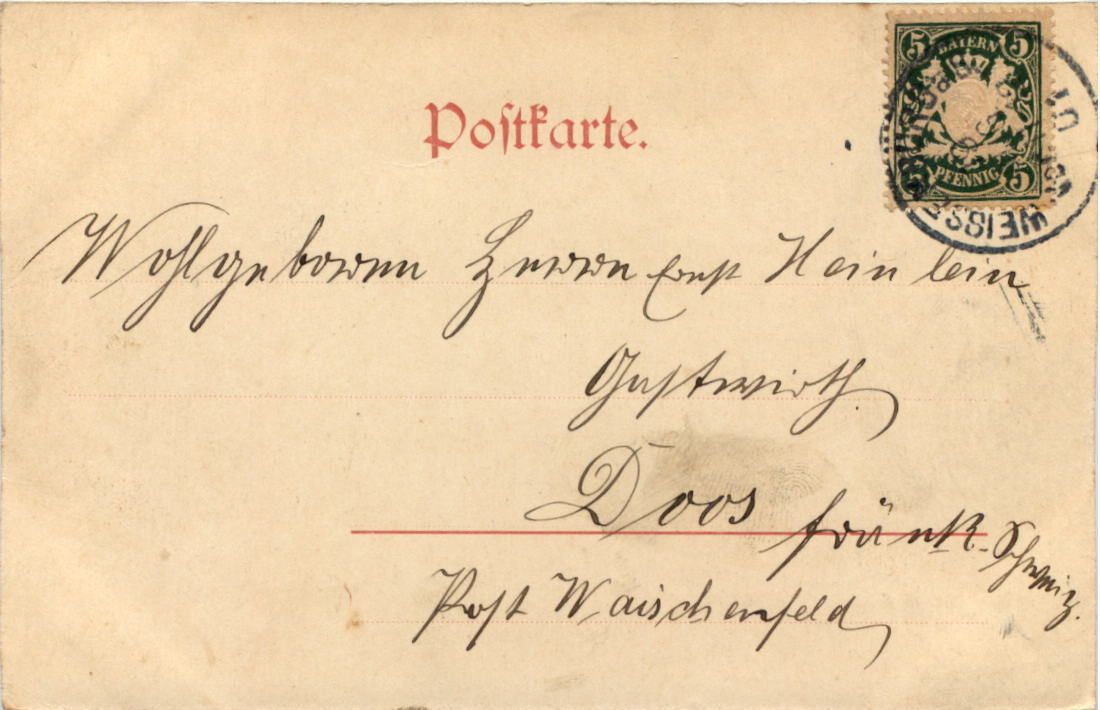 Postkarte.
5 BAYERN 5
5 PFENNIG 5
WEISSENBURG
Wohlgeboren Herrn Ernst Heinlein
Gastwirth
Doos fränk. Schweiz.
Post Waischenfeld